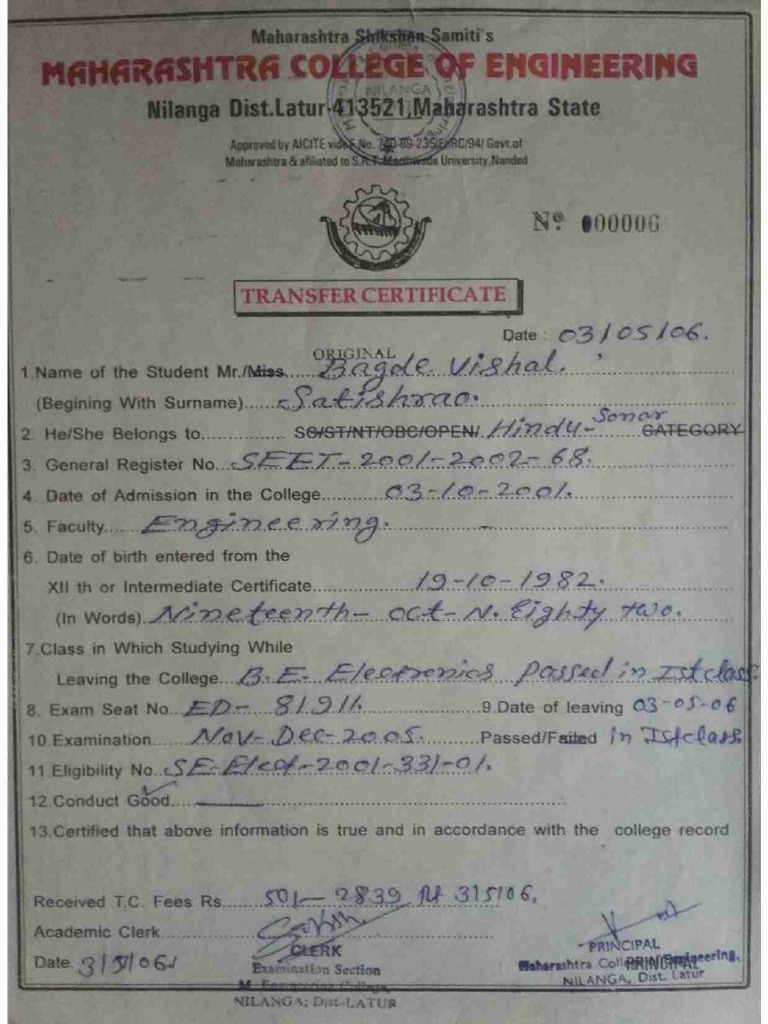 Maharashtra Shikshan Samiti's
MAHARASHTRA COLLEGE OF ENGINEERING
Nilanga Dist.Latur-413521,Maharashtra State
Approved by AICITE vide F.No. 740-89-235(E)RC/94/ Govt.of
Maharashtra & afiliated to S.R.T. Marthwada University,Nanded
NILANGA
Nº 000006
TRANSFER CERTIFICATE
Date : 03/05/06.
ORIGINAL
1.Name of the Student Mr./Miss.....Bagde Vishal.
(Begining With Surname).....Satishrao.
2. He/She Belongs to.............. SC/ST/NT/OBC/OPEN/ Hindu-Sonar CATEGORY
3. General Register No...SEET-2001-2002-68.
4. Date of Admission in the College..........03-10-2001.
5. Faculty......Engineering.
6. Date of birth entered from the
XII th or Intermediate Certificate..............19-10-1982.
(In Words).Nineteenth-Oct-N.Eighty two.
7.Class in Which Studying While
Leaving the College...B.E. Electronics passed in Ist class.
8. Exam Seat No...ED-81911.............9.Date of leaving 03-05-06
10.Examination......Nov-Dec-2005..........Passed/Failed in Ist class
11.Eligibility No..SE-Elect-2001-331-01.
12.Conduct Good.....
13.Certified that above information is true and in accordance with the college record
Received T.C. Fees Rs.......50/- 2839 Rt 3/5/06,
Academic Clerk.....
Date. 3/5/06
CLERK
Examination Section
M. Engineering College,
NILANGA; Dist-LATUR
PRINCIPAL
Maharashtra College of Engineering,
PRINCIPAL
NILANGA, Dist. Latur